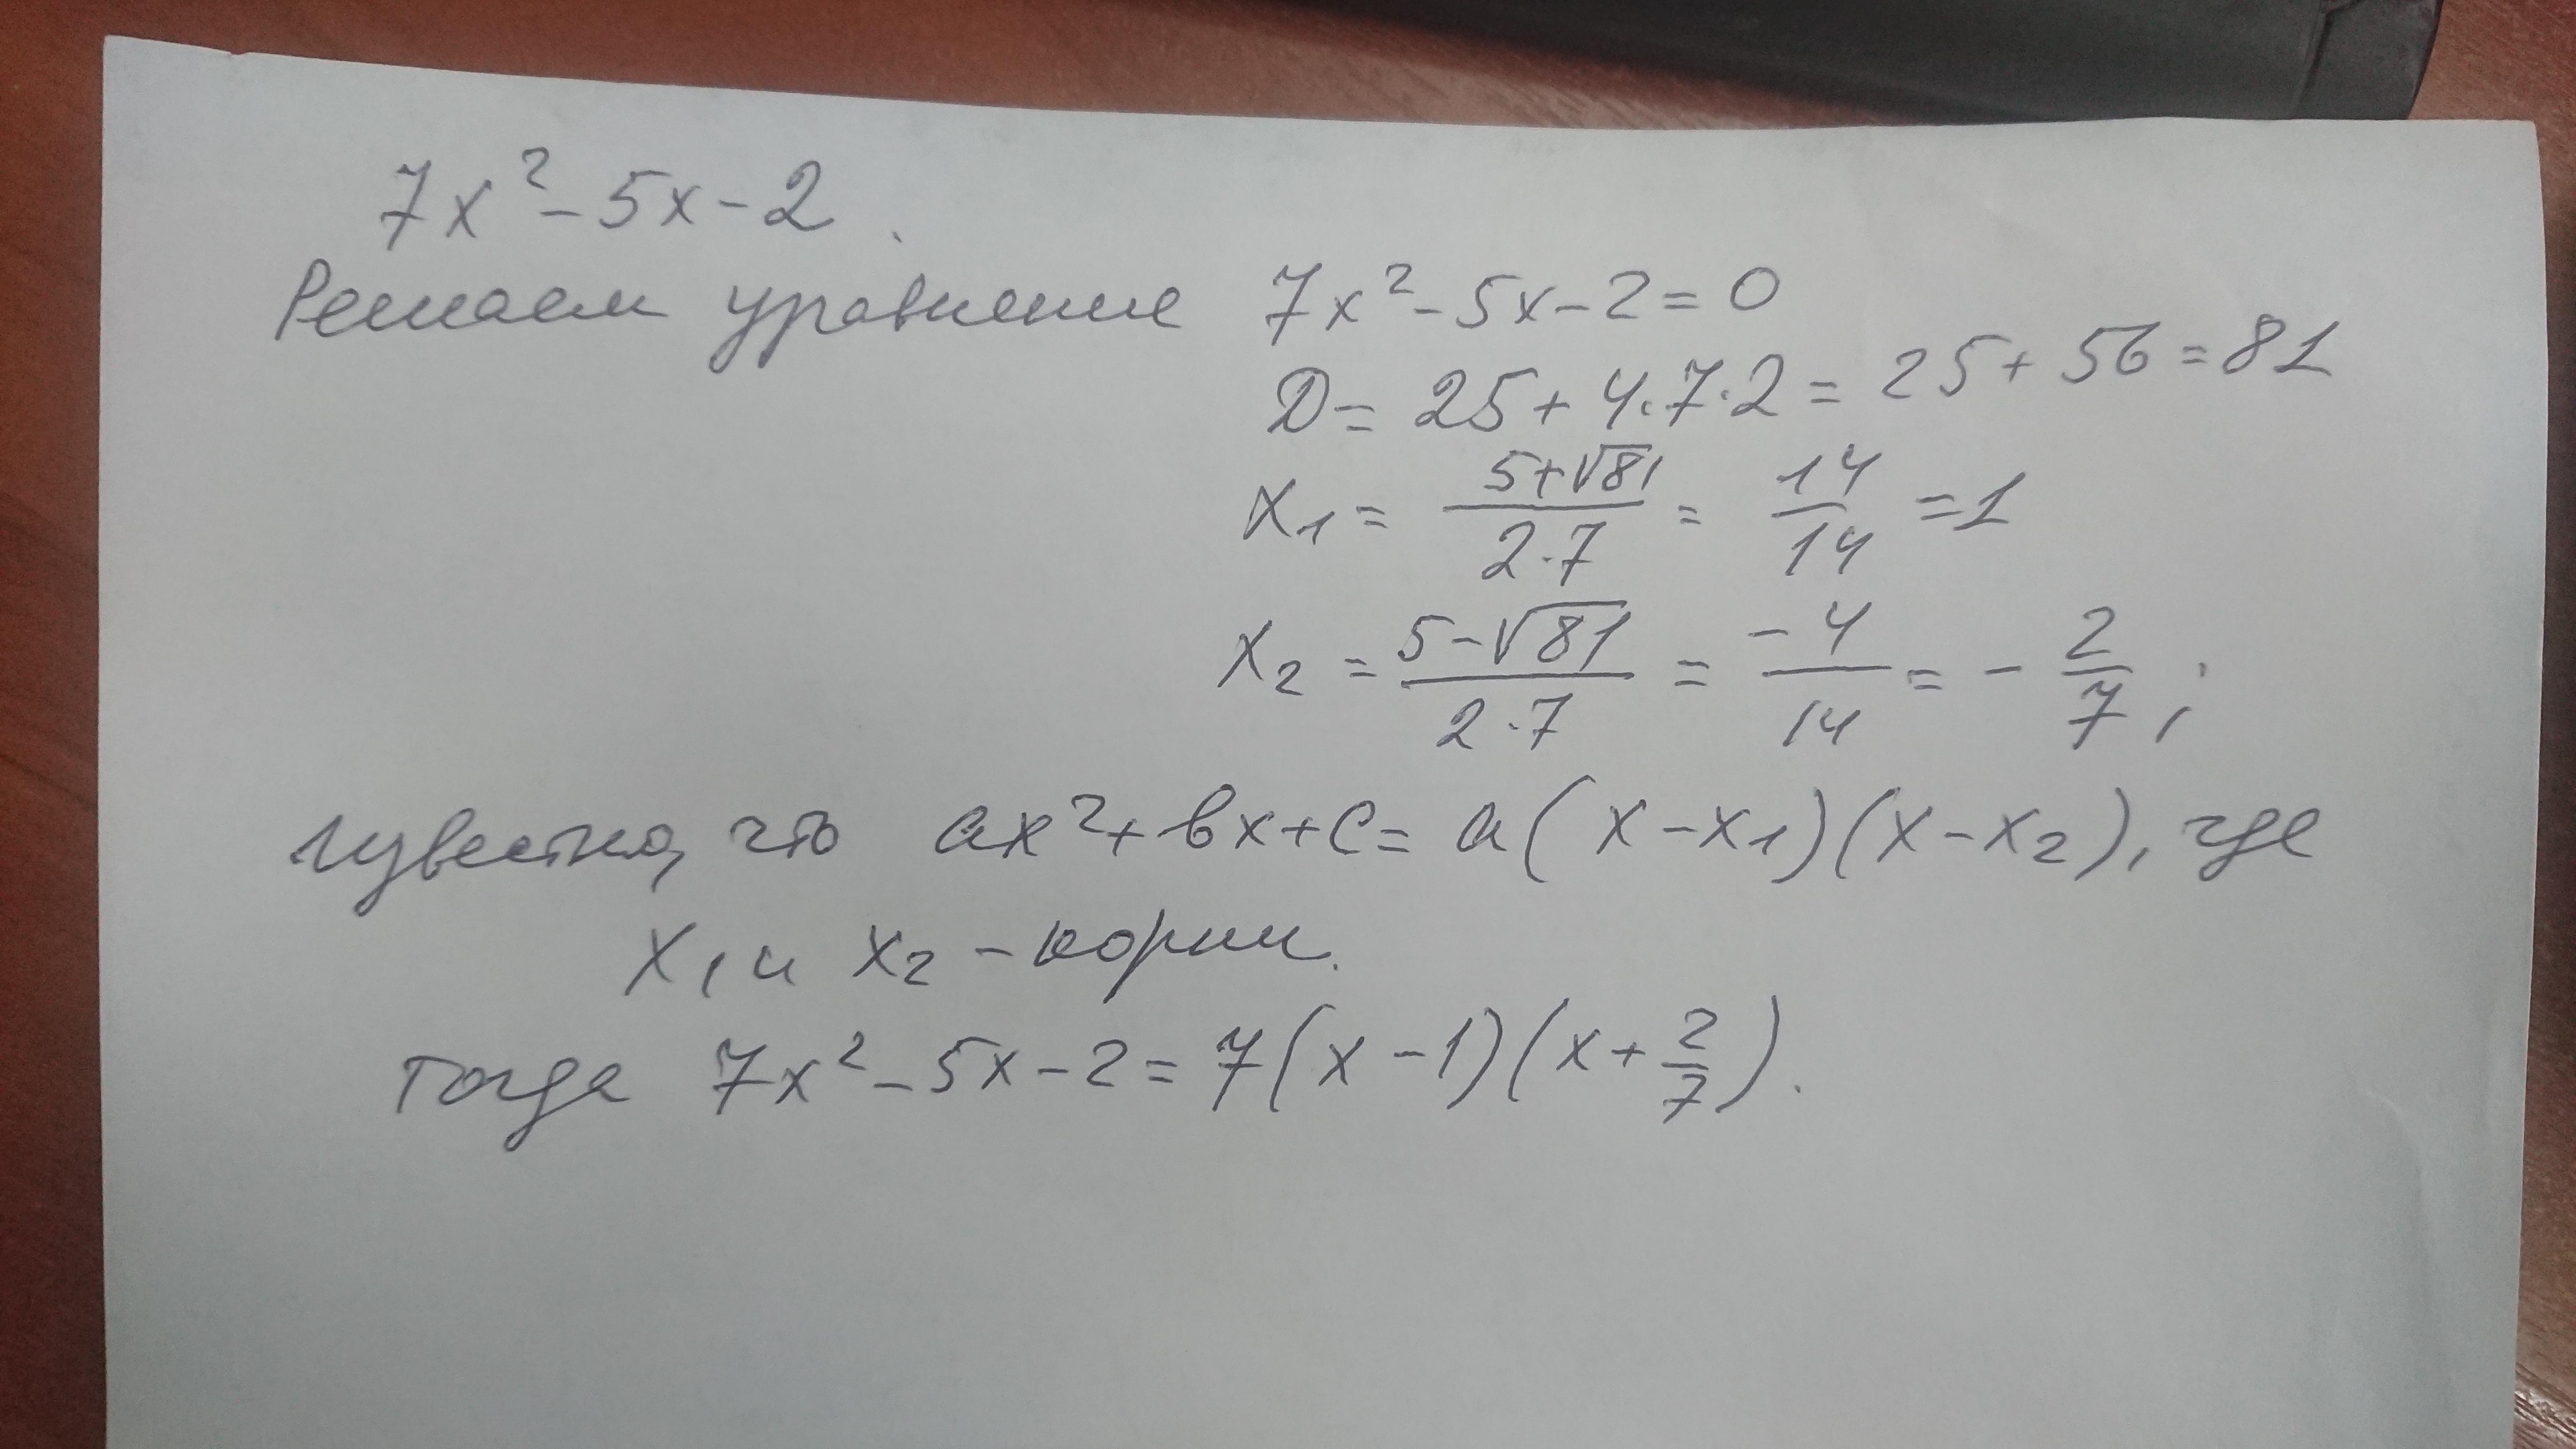 7x² - 5x - 2.
Решаем уравнение 7x² - 5x - 2 = 0
D = 25 + 4·7·2 = 25 + 56 = 81
x₁ = (5+√81)/(2·7) = 14/14 = 1
x₂ = (5-√81)/(2·7) = -4/14 = -2/7;
Известно, что ax² + bx + c = a(x - x₁)(x - x₂), где
x₁ и x₂ - корни.
тогда 7x² - 5x - 2 = 7(x - 1)(x + 2/7).